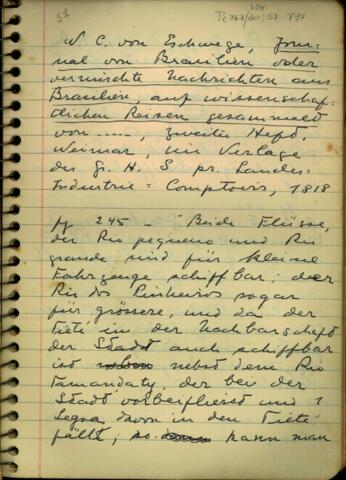 37
W. C. von Eschwege, Jour-
nal von Brasilien oder
vermischte Nachrichten aus
Brasilien, auf wissenschaf-
tlichen Reisen gesammelt
von ..... Zweites Heft,
Weimar, im Verlage
des Gr. H. S. pr. Landes-
Industrie = Comptoirs, 1818
pg 245 - Beide Flüsse,
der Rio pequeno und Rio
grande sind für kleine
Fahrzeuge schiffbar; der
Rio dos Pinheiros sogar
für grössere, und da der
Tiete in der Nachbarschaft
der Stadt auch schiffbar
ist nebst dem Rio
Tamandaty, der bei der
Stadt vorbeifliesst und 1
Legoa davon in den Tieté
fällt, so kann man